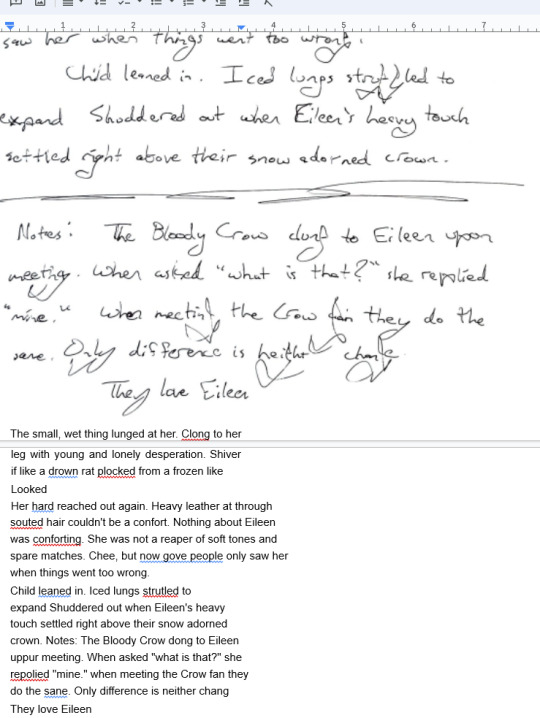 1 2 3 4 5 6 7
saw her when things went too wrong.
Child leaned in. Iced lungs struggled to
expand Shuddered out when Eileen's heavy touch
settled right above their snow adorned crown.
Notes: The Bloody Crow clung to Eileen upon
meeting. When asked "what is that?" she replied
"mine." when meeting the Crow fan they do the
same. Only difference is height change.
They love Eileen
The small, wet thing lunged at her. Clong to her
leg with young and lonely desperation. Shiver
if like a drown rat plocked from a frozen like
Looked
Her hard reached out again. Heavy leather at through
souted hair couldn't be a confort. Nothing about Eileen
was conforting. She was not a reaper of soft tones and
spare matches. Chee, but now gove people only saw her
when things went too wrong.
Child leaned in. Iced lungs strutled to
expand Shuddered out when Eileen's heavy
touch settled right above their snow adorned
crown. Notes: The Bloody Crow dong to Eileen
uppur meeting. When asked "what is that?" she
repolied "mine." when meeting the Crow fan they
do the sane. Only difference is neither chang
They love Eileen